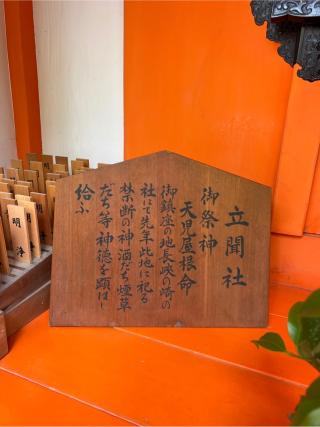 立聞社
御祭神
天児屋根命
御鎮座の地長峡の崎の
社にて先年此地に祀る
禁断の神酒だち煙草
だち等神徳を顕はし
給ふ
明
浄